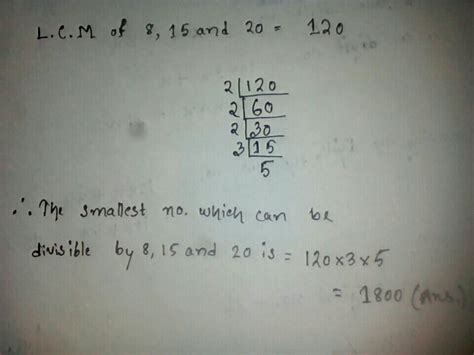 L.C.M of 8, 15 and 20 = 120
2 | 120
2 | 60
2 | 30
3 | 15
5
∴ The smallest no. which can be
divisible by 8, 15 and 20 is = 120×3×5
= 1800 (Ans.)